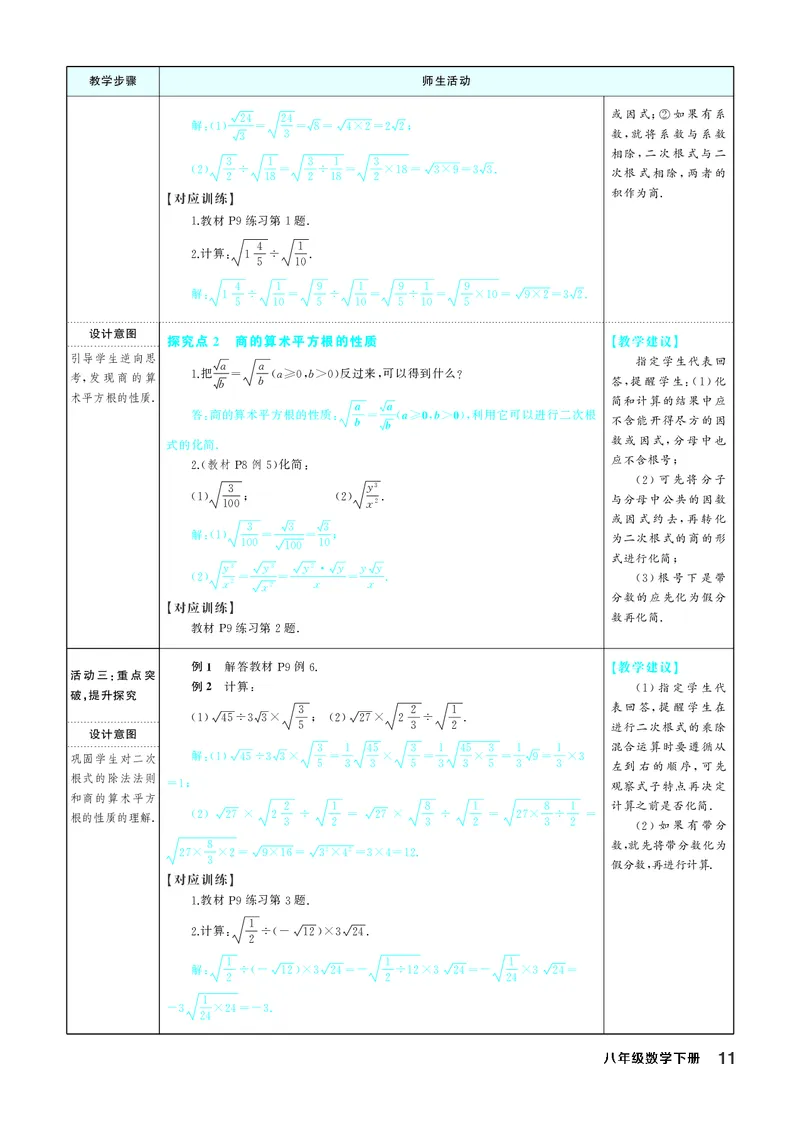 教学步骤 师生活动
解:(1) √24/√3=√(24/3)=√8=√(4×2)=2√2;
(2) √(3/2)÷√(1/18)=√(3/2÷1/18)=√(3/2×18)=√(3×9)=3√3.
【对应训练】
1.教材 P9 练习第 1 题.
2.计算:√(1 4/5)÷√(1/10).
解:√(1 4/5)÷√(1/10)=√(9/5)÷√(1/10)=√(9/5÷1/10)=√(9/5×10)=√(9×2)=3√2.
或因式;②如果有系
数,就将系数与系数
相除,二次根式与二
次根式相除,两者的
积作为商.
设计意图
引导学生逆向思
考,发现商的算
术平方根的性质.
探究点 2 商的算术平方根的性质
1.把 √a/√b=√(a/b)(a≥0,b>0)反过来,可以得到什么?
答:商的算术平方根的性质:√(a/b)=√a/√b(a≥0,b>0),利用它可以进行二次根
式的化简.
2.(教材 P8 例 5)化简:
(1) √(3/100); (2) √(y³/x²).
解:(1) √(3/100)=√3/√100=√3/10;
(2) √(y³/x²)=√y³/√x²=√y²·√y/x=y√y/x.
【对应训练】
教材 P9 练习第 2 题.
【教学建议】
指定学生代表回
答,提醒学生:(1)化
简和计算的结果中应
不含能开得尽方的因
数或因式,分母中也
应不含根号;
(2)可先将分子
与分母中公共的因数
或因式约去,再转化
为二次根式的商的形
式进行化简;
(3)根号下是带
分数的应先化为假分
数再化简.
活动三:重点突
破,提升探究
设计意图
巩固学生对二次
根式的除法法则
和商的算术平方
根的性质的理解.
例 1 解答教材 P9 例 6.
例 2 计算:
(1) √45÷3√3×√(3/5); (2) √27×√(2 2/3)÷√(1/2).
解:(1) √45÷3√3×√(3/5)=1/3√(45/3)×√(3/5)=1/3√(45/3×3/5)=1/3√9=1/3×3
=1;
(2) √27×√(2 2/3)÷√(1/2)=√27×√(8/3)÷√(1/2)=√(27×8/3÷1/2)=
√(27×8/3×2)=√(9×16)=√(3²×4²)=3×4=12.
【对应训练】
1.教材 P9 练习第 3 题.
2.计算:√(1/2)÷(-√12)×3√24.
解:√(1/2)÷(-√12)×3√24=-√(1/2÷12)×3√24=-√(1/24)×3√24=
-3√(1/24×24)=-3.
【教学建议】
(1)指定学生代
表回答,提醒学生在
进行二次根式的乘除
混合运算时要遵循从
左到右的顺序,可先
观察式子特点再决定
计算之前是否化简.
(2)如果有带分
数,就先将带分数化为
假分数,再进行计算.
八年级数学下册 11